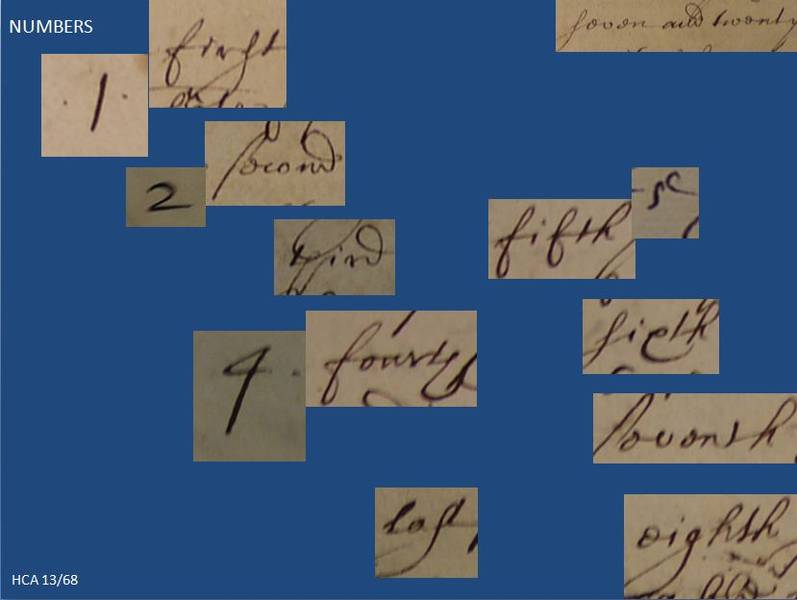 NUMBERS
first
seven and twenty
1
second
2
5
third
fifth
sixth
4
fourth
seventh
last
eighth
HCA 13/68